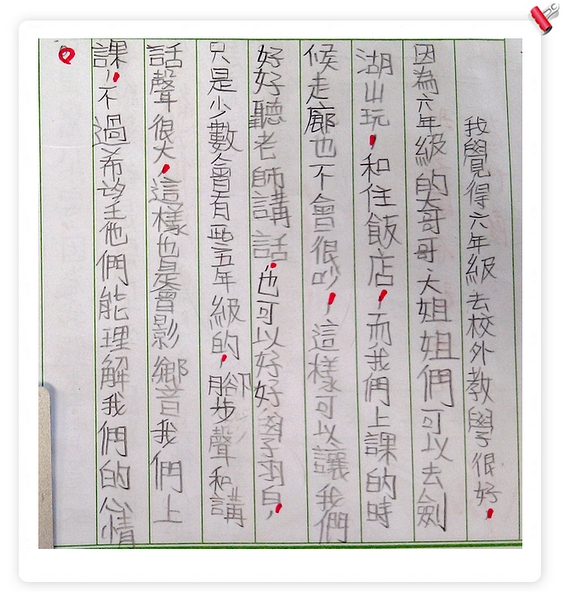 我覺得六年級去校外教學很好，
因為六年級的大哥哥大姐姐們可以去劍
湖山玩，和住飯店，而我們上課的時
候走廊也不會很吵，這樣可以讓我們
好好聽老師講話，也可以好好學習，
只是少數會有些五年級的，腳步聲和講
話聲很大，這樣也是會影響我們上
課，不過希望他們能理解我們的心情
。